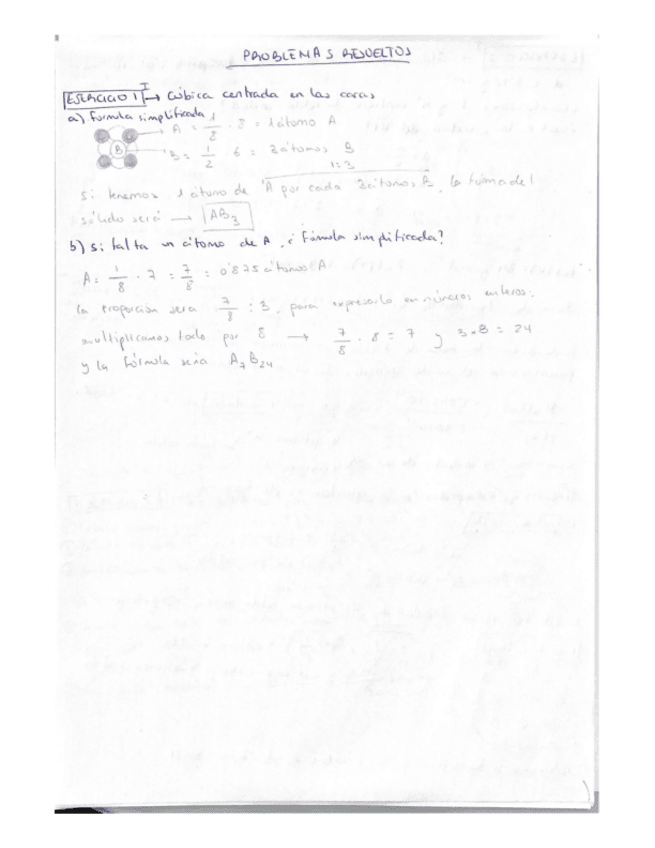 PROBLEMAS RESUELTOS
EJERCICIO 1 I → Cúbica centrada en las caras
a) fórmula simplificada
A = 1/2 · 8 = 1 átomo A
B
B = 1/2 · 6 = 3 átomos B
1:3
Si tenemos 1 átomo de A por cada 3 átomos B, la fórmula del
sólido será → AB3
b) Si falta un átomo de A, ¿fórmula simplificada?
A = 1/8 · 7 = 7/8 = 0'875 átomos A
la proporción será 7/8 : 3, para expresarlo en números enteros:
multiplicamos todo por 8 → 7/8 · 8 = 7 y 3 × 8 = 24
y la fórmula sería A7B24